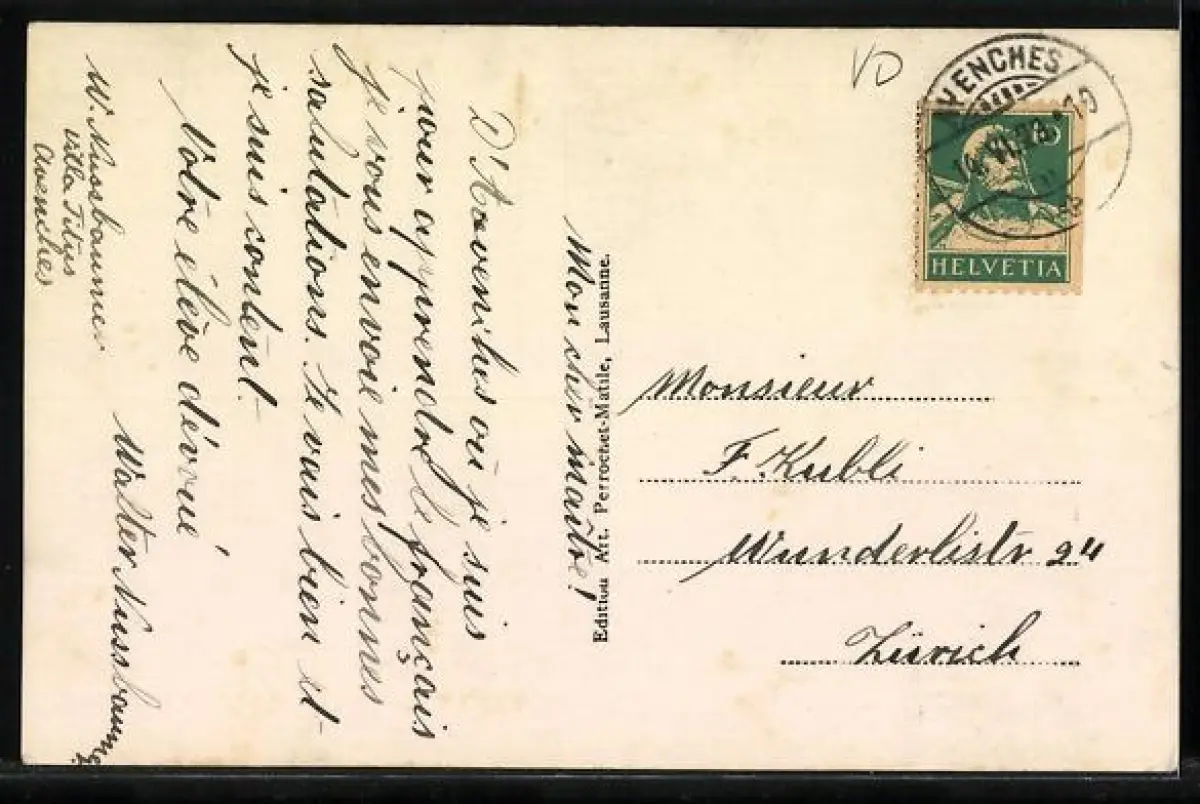 Mon cher maître!
D'Avenches où je suis
pour apprendre le français
je vous envoie mes bonnes
salutations. Je vais bien et
je suis content.
Votre élève dévoué
Walter Nussbaumer
W. Nussbaumer
Villa Titus
Avenches
Edition Art. Perrochet-Matile, Lausanne.
VD
AVENCHES
HELVETIA
Monsieur
F. Kubli
Wunderlistr 24
Zürich